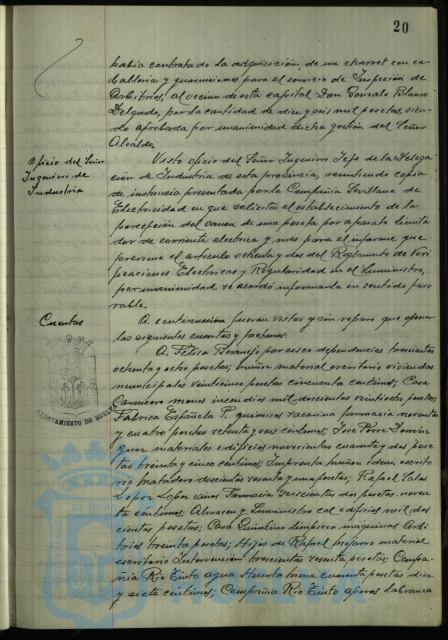 20
había contratado la adquisición de un charret con ca-
ballerias y guarniciones para el servicio de Inspección de
Arbitrios, al vecino de esta capital Don Gonzalo Blanco
Delgado, por la cantidad de diez y seis mil pesetas, sien-
do aprobada por unanimidad dicha gestión del Señor
Alcalde.
Oficio del Señor
Ingeniero de
Industria
Visto oficio del Señor Ingeniero Jefe de la Delega-
ción de Industria de esta provincia, remitiendo copia
de instancia presentada por la Compañia Sevillana de
Electricidad en que solicita el establecimiento de la
percepción del canon de una peseta por aparato limita
dor de corriente electrica y mes para el informe que
previene el articulo ochenta y dos del Reglamento de Veri
ficaciones Electricas y Regularidad en el Suministro,
por unanimidad se acordó informarla en sentido favo
rable.
Cuentas
A continuación fueron vistas y sin reparo que oponer
las siguientes cuentas y facturas:
A Felisa Bermejo por aseo dependencias trescientas
ochenta y ocho pesetas; material escritorio viviendas
municipales veinticinco pesetas cincuenta centimos; Casa
mil doscientas veintiocho pesetas;
Fabrica Española P. quimicos farmacia noventa
y cuatro pesetas setenta y seis centimos; José Perez
materiales edificios novecientas cuarenta y dos pese
tas treinta y cinco centimos; Imprenta Muñoz idem escrito
rio matadero doscientas sesenta y una pesetas; Rafael Salas
Lopez Lopez vinos Farmacia seiscientas dos pesetas noven
ta centimos; Almacen y Suministro cal edificios mil dos
cientas pesetas; Casa limpieza maquinas Arbi
trios treinta pesetas; Hijos de Rafael material
escritorio Intervención trescientas sesenta pesetas; Compa-
ñia Rio Tinto agua cuarenta pesetas diez
y siete centimos; Compañia Rio Tinto labranza
AYUNTAMIENTO DE HUELVA